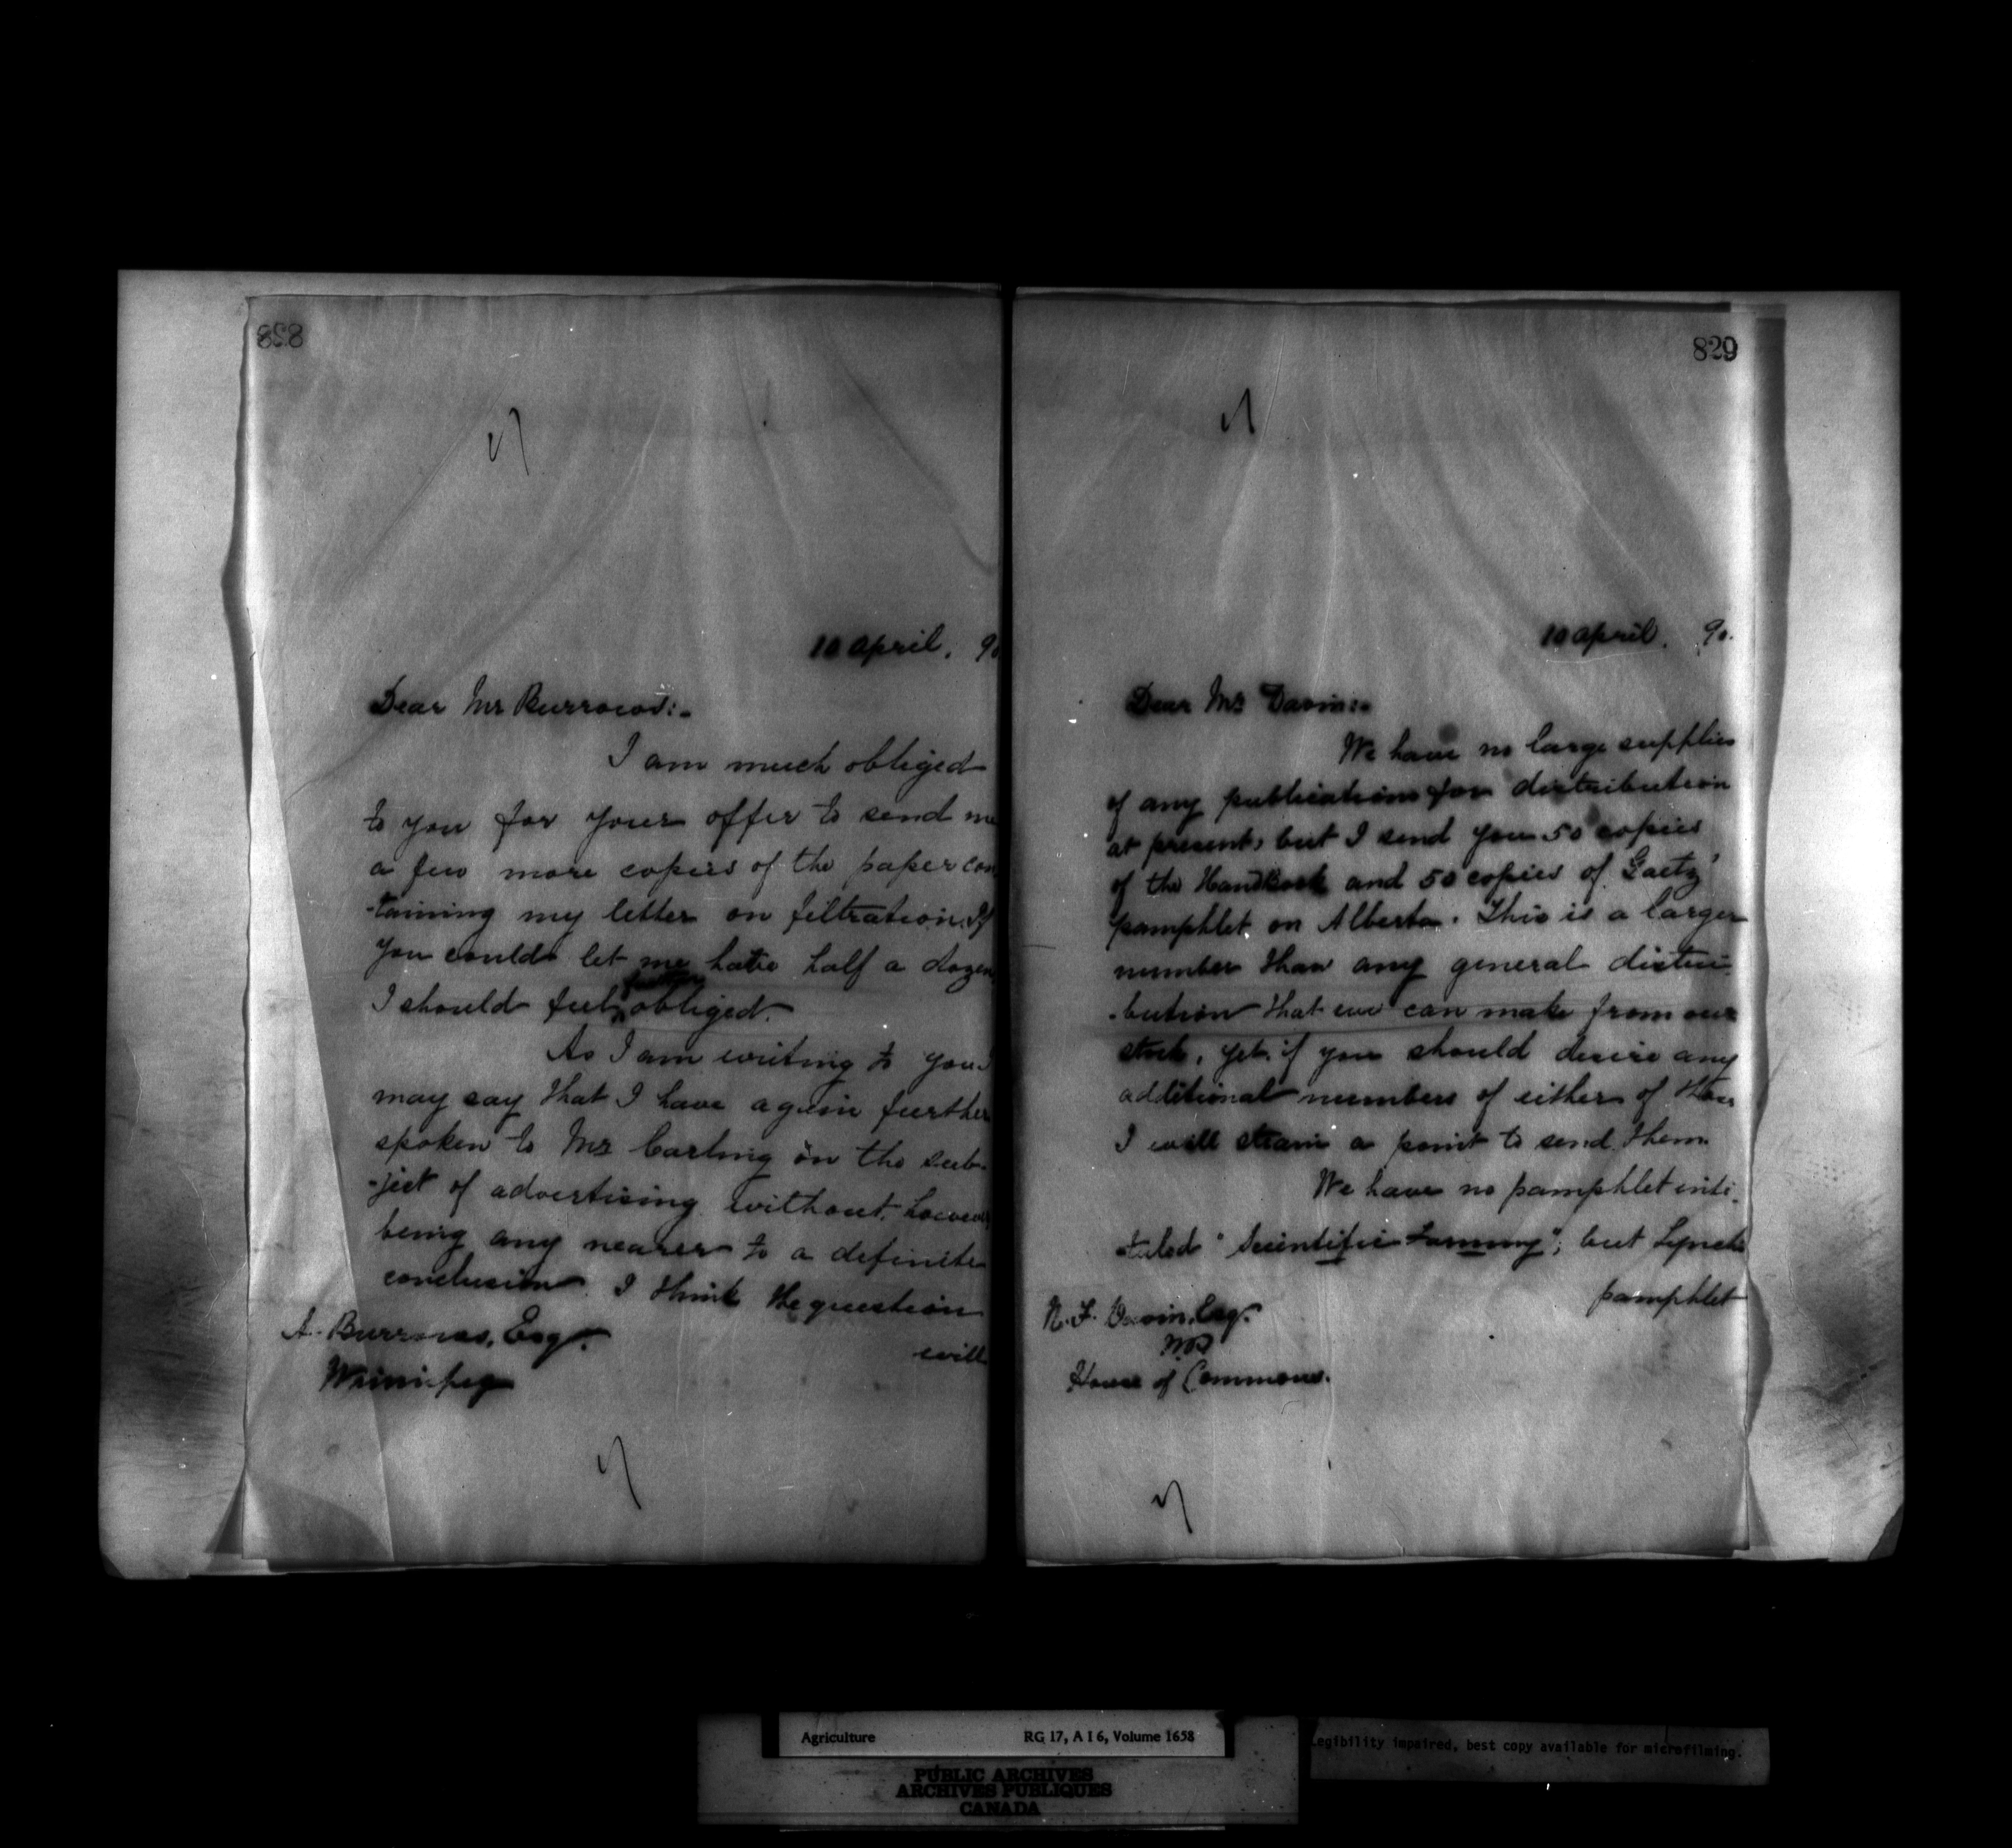 828
10 April, 90
Dear Mr Burrows:-
I am much obliged
to you for your offer to send me
a few more copies of the paper con
-taining my letter on filtration. If
you could let me have half a dozen
I should feel obliged.
As I am writing to you I
may say that I have again further
spoken to Mr Carling on the sub-
-ject of advertising without, however
being any nearer to a definite
conclusion. I think the question
will
A. Burrows, Esq.
Winnipeg
829
10 April, 90.
Dear Mr Davin:-
We have no large supplies
of any publications for distribution
at present, but I send you 50 copies
of the Handbook and 50 copies of Gaetz'
pamphlet on Alberta. This is a larger
number than any general distri-
-bution that we can make from our
stock, yet, if you should desire any
additional numbers of either of them
I will strain a point to send them.
We have no pamphlet inti-
-tuled "Scientific Farming"; but Lynch
pamphlet
N. F. Davin, Esq.
MP
House of Commons.
Agriculture RG 17, A I 6, Volume 1658
PUBLIC ARCHIVES
ARCHIVES PUBLIQUES
CANADA
Legibility impaired, best copy available for microfilming.